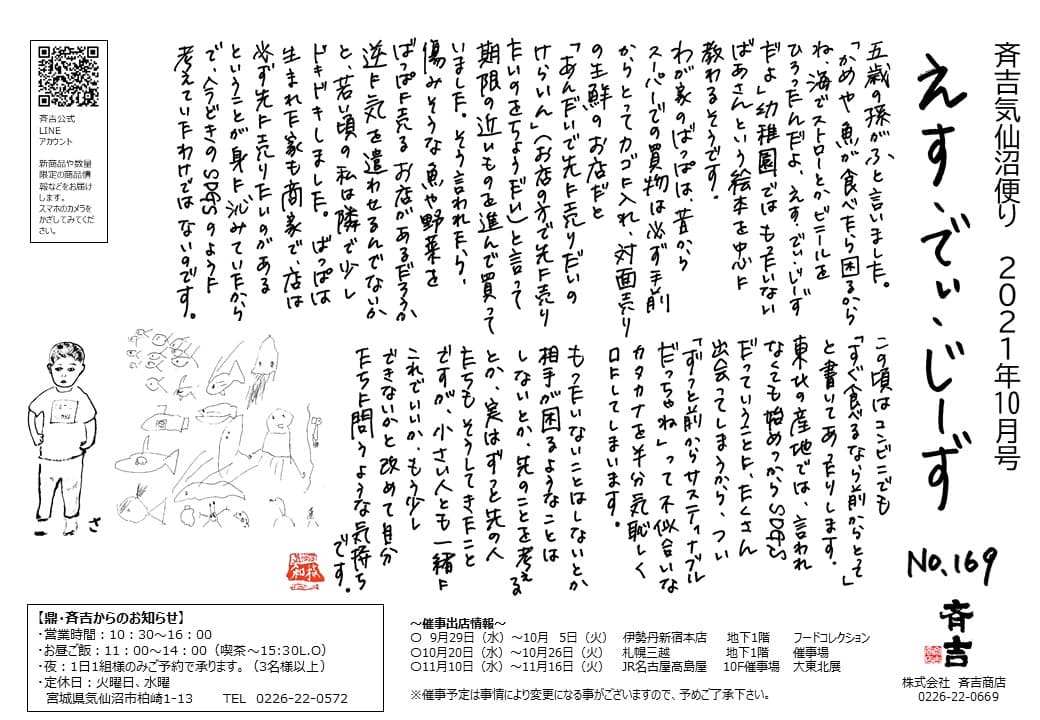 斉吉気仙沼便り　2021年10月号
えす、でぃ、じーず
No.169
斉吉
株式会社　斉吉商店
0226-22-0669
五歳の孫がふと言いました。
「かめや魚が食べたら困るから
ね、海でストローとかビニールを
ひろったんだよ、えすでぃじーず
だよ」幼稚園ではもったいない
ばあさんという絵本を中心に
教わるそうです。
わが家のばっぱは、昔から
スーパーでの買物は必ず手前
からとってカゴに入れ、対面売り
の生鮮のお店だと
「あんだいで先に売りだいの
けらいん」（お店の方で先に売り
たいのをちょうだい）と言って
期限の近いものを進んで買って
いました。そう言われたら、
傷みそうな魚や野菜を
ばっぱに売るお店があるだろうか
逆に気を遣わせるんでないか
と、若い頃の私は隣で少し
ドキドキしました。ばっぱは
生まれた家も商家で、店は
必ず先に売りたいのがある
ということが身に沁みていたから
で、今どきのSDGsのように
考えていたわけではないのです。
この頃はコンビニでも
「すぐ食べるなら前からとって」
と書いてあったりします。
東北の産地では、言われ
なくても始めっからSDGs
だっていうことに、たくさん
出会ってしまうから、つい
「ずっと前からサスティナブル
だっちゃね」って不似合いな
カタカナを半分気恥しく
口にしてしまいます。
もったいないことはしないとか
相手が困るようなことは
しないとか、先のことを考える
とか、実はずっと先の人
たちもそうしてきたこと
ですが、小さい人とも一緒に
これでいいか、もう少し
できないかと改めて自分
たちに問うような気持ち
です。
斉吉公式
LINE
アカウント
新商品や数量
限定の商品情
報などをお届け
します。
スマホのカメラを
かざしてみてくだ
さい。
さ
【鼎・斉吉からのお知らせ】
・営業時間：10：30～16：00
・お昼ご飯：11：00～14：00（喫茶～15:30L.O）
・夜：1日1組様のみご予約で承ります。（3名様以上）
・定休日：火曜日、水曜
宮城県気仙沼市柏崎1-13　　TEL　0226-22-0572
～催事出店情報～
〇　9月29日（水）～10月　5日（火）　伊勢丹新宿本店　地下1階　フードコレクション
〇10月20日（水）～10月26日（火）　札幌三越　地下1階　催事場
〇11月10日（水）～11月16日（火）　JR名古屋高島屋　10F催事場　大東北展
※催事予定は事情により変更になる事がございますので、予めご了承下さい。